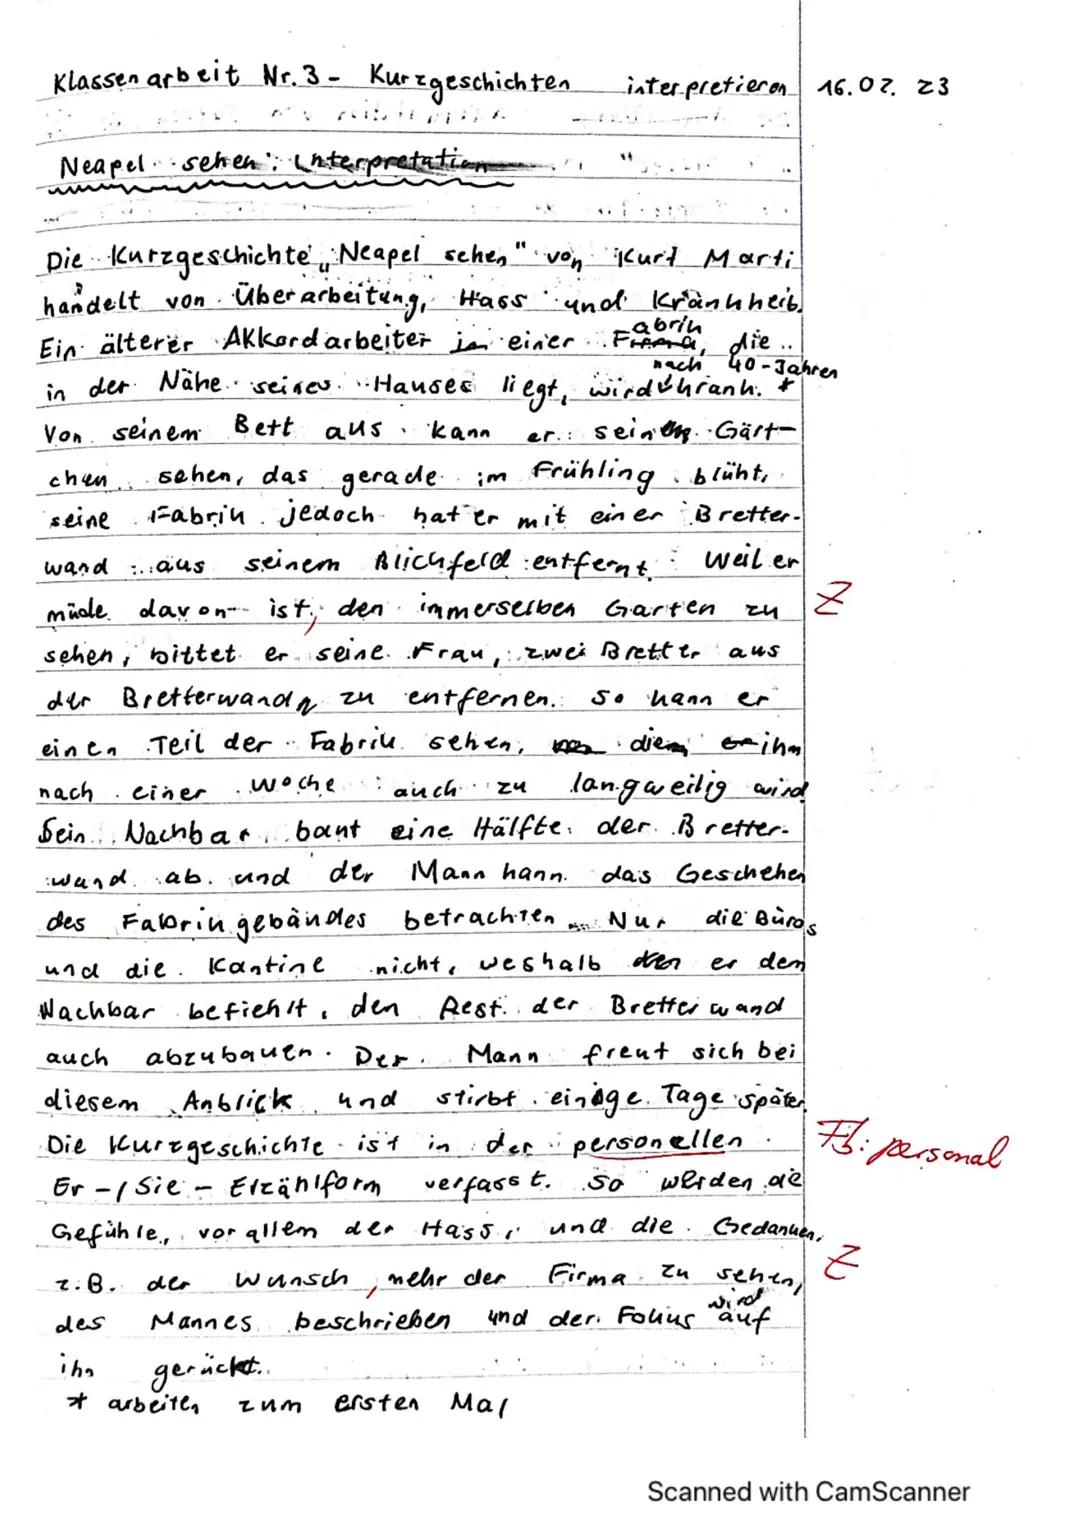 Klassenarbeit Nr. 3 - Kurzgeschichten interpretieren 16.02.23
Neapel sehen: Interpretation
Die Kurzgeschichte „Neapel sehen" von Kurt Marti
handelt von Überarbeitung, Hass und Krankheit.
Ein älterer Akkordarbeiter in einer Fabrik, die
in der Nähe seines Hauses liegt, wird nach 40-Jahren krank. *
Von seinem Bett aus kann er sein Gärt-
chen sehen, das gerade im Frühling blüht,
seine Fabrik jedoch hat er mit einer Bretter-
wand aus seinem Blickfeld entfernt. Weil er
müde davon ist, den immerselben Garten zu Z
sehen, bittet er seine Frau, zwei Bretter aus
der Bretterwand zu entfernen. So kann er
einen Teil der Fabrik sehen, die ihm
nach einer Woche auch zu langweilig wird
Sein Nachbar baut eine Hälfte der Bretter-
wand ab und der Mann kann das Geschehen
des Fabrikgebäudes betrachten. Nur die Büros
und die Kantine nicht, weshalb er dem
Nachbar befiehlt, den Rest der Bretterwand
auch abzubauen. Der Mann freut sich bei
diesem Anblick und stirbt einige Tage später.
Die Kurzgeschichte ist in der personellen Fb: personal
Er-/Sie-Erzählform verfasst. So werden die
Gefühle, vor allem der Hass, und die Gedanken,
z.B. der Wunsch, mehr der Firma zu sehen, Z
des Mannes beschrieben und der Fokus wird auf
ihn gerückt.
* arbeiten zum ersten Mal
Scanned with CamScanner